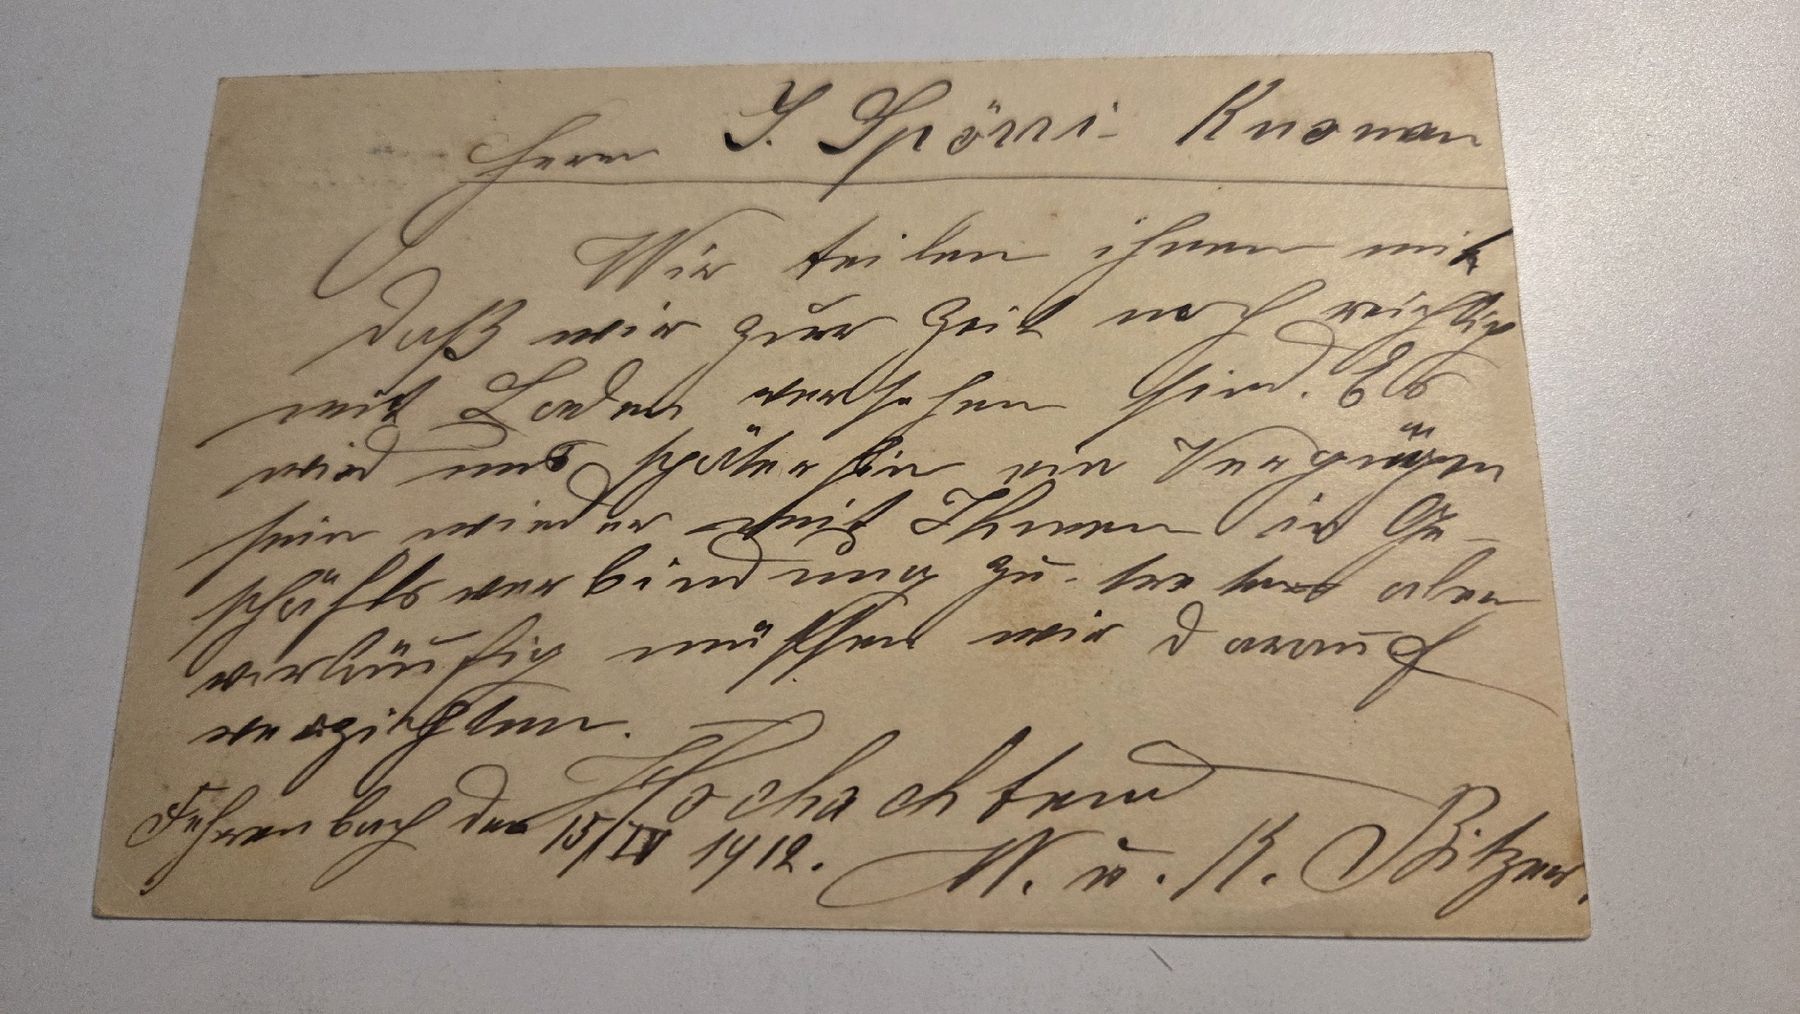 Herrn J. Spörri - Knonau
Wir teilen ihnen mit
daß wir zur Zeit noch reichlig
mit Laden versehen sind. Es
wird uns späterhin ein Vergnügen
sein wieder mit Ihnen in Ge-
schäftsverbindung zu treten aber
vorläufig müssen wir darauf
verzichten.
Hochachtend
Fehrenbach den 15/IV 1912.
W. u. K. Bitzer.